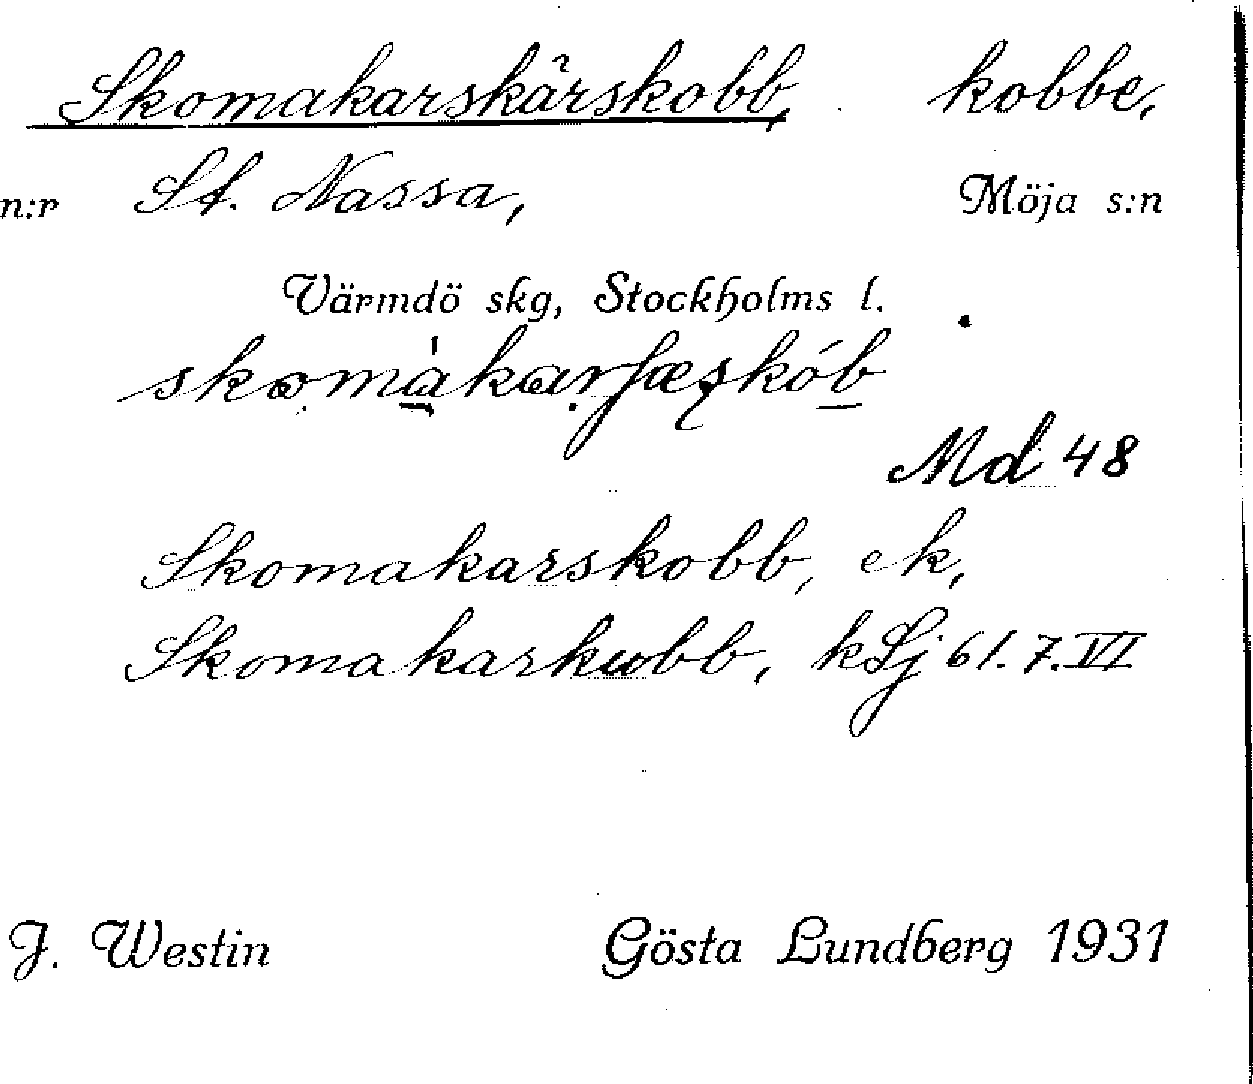 Skomakarskärskobb, kobbe,
n:r St. Nassa, Möja s:n
Värmdö skg, Stockholms l.
Md 48
Skomakarskobb, ek,
Skomakarkubb, kLj 61.7.VI
J. Westin Gösta Lundberg 1931